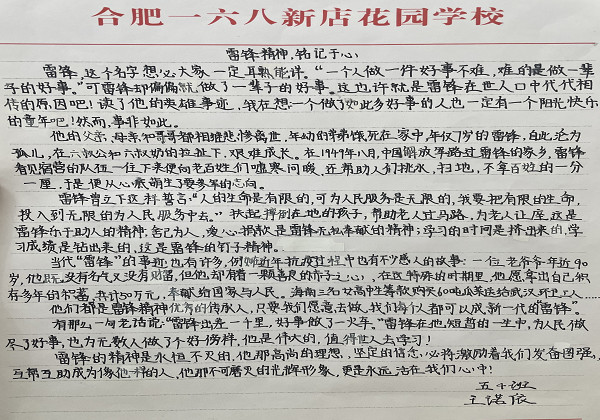 合肥一六八新店花园学校
雷锋精神,铭记于心
雷锋,这个名字想必大家一定耳熟能详。“一个人做一件好事不难,难的是做一辈
子的好事。”可雷锋却偏偏就做了一辈子的好事。这也许就是雷锋在世人口中代代相
传的原因吧!读了他的英雄事迹,我在想一个做了如此多好事的人也一定有一个阳光快乐
的童年吧!然而,事非如此。
他的父亲、母亲和哥哥都相继悲惨离世,年幼的弟弟饿死在家中,年仅7岁的雷锋,自此沦为
孤儿,在六叔公和六叔奶的拉扯下,艰难成长。在1949年八月,中国解放军路过雷锋的家乡,雷锋
看见宿营的队伍一住下来便向老百姓们嘘寒问暖,还帮助人们挑水、扫地,不拿百姓的一分
一厘,于是便从心底萌生了要参军的志向。
雷锋曾立下这样誓言:“人的生命是有限的,可为人民服务是无限的,我要把有限的生命,
投入到无限的为人民服务中去。”扶起摔倒在地的孩子,帮助老人过马路,为老人让座,这是
雷锋乐于助人的精神;舍己为人,爱心捐款是雷锋无私奉献的精神;学习的时间是挤出来的,学
习成绩是钻出来的,这是雷锋的钉子精神。
当代“雷锋”的事迹也有许多,例如在近年抗疫过程中也有不少感人的故事:一位老爷爷年近90
岁,他既没有名气又没有财富,但他却有着一颗善良的赤子之心,在这特殊的时期里,他愿拿出自己积
有多年的积蓄,共计50万元,奉献给国家与人民。海南三名女高中生筹款购买60吨瓜菜送给武汉环卫工人……
他们都是雷锋精神优秀的传承人,只要我们愿意去做,我们每个人都可以成新一代的“雷锋”。
有那么一句老话说:“雷锋出差一千里,好事做了一火车。”雷锋在他短暂的一生中,为人民做
尽了好事,也为无数人做了个好榜样,他是伟大的,值得世人去学习!
雷锋的精神是永恒不灭的,他那高尚的理想、坚定的信念,必将激励着我们发奋图强,
互帮互助成为像他一样的人,他那不可磨灭的光辉形象,更是永远活在我们心中!
五十班
王諾辰